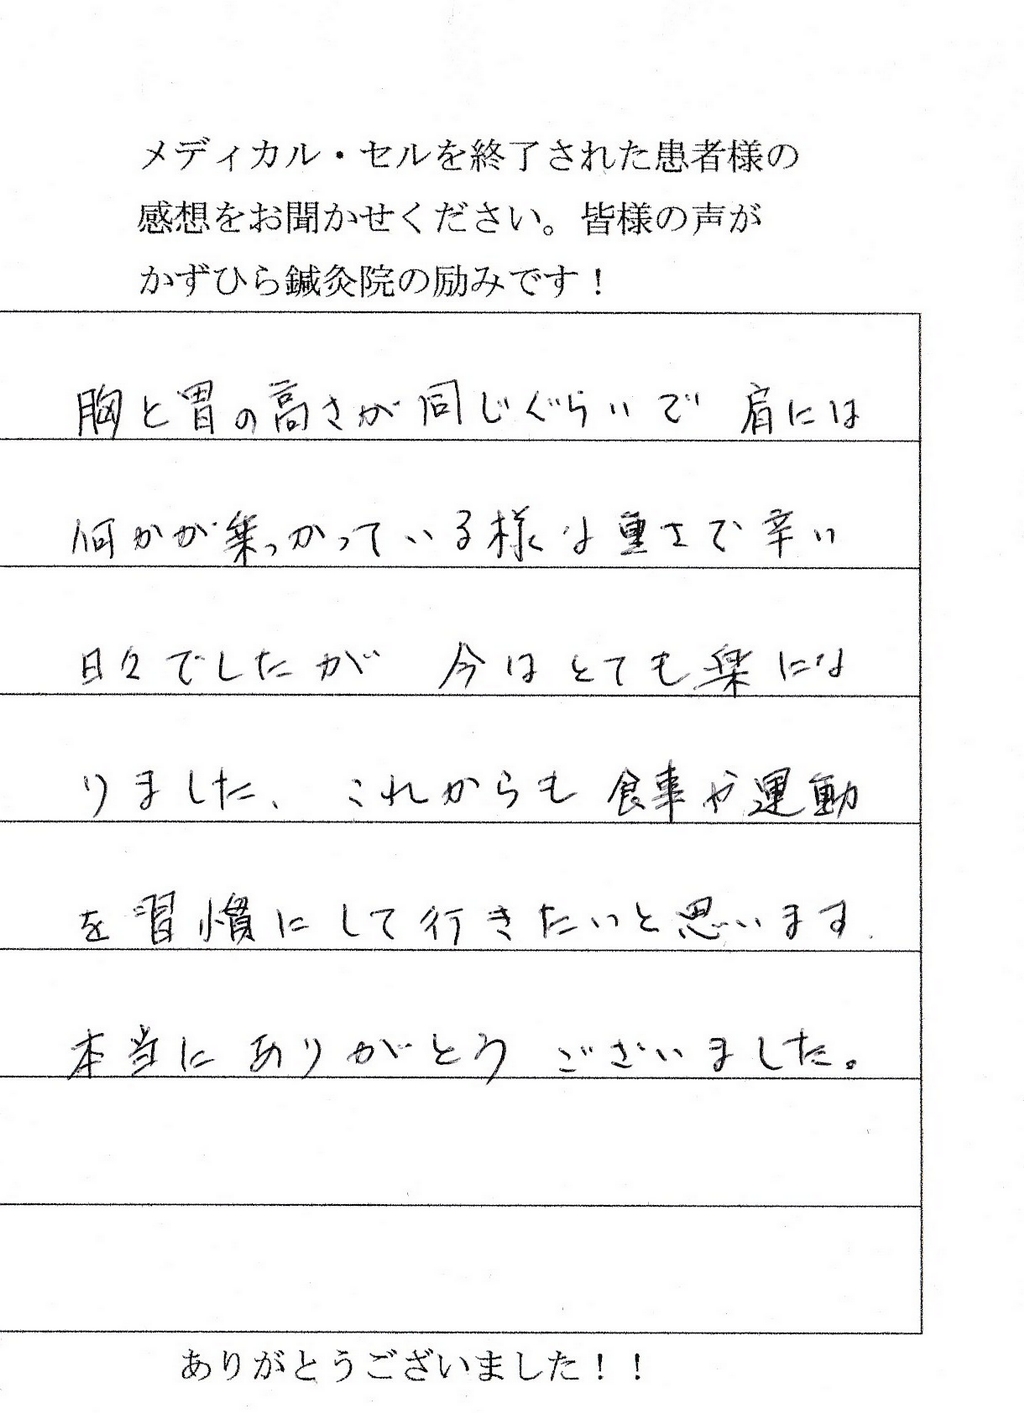 メディカル・セルを終了された患者様の
感想をお聞かせください。皆様の声が
かずひら鍼灸院の励みです！
胸と胃の高さが同じぐらいで 肩には
何かが乗っかっている様な重さで辛い
日々でしたが 今はとても楽にな
りました、これからも食事や運動
を習慣にして行きたいと思います.
本当にありがとうございました。
ありがとうございました！！